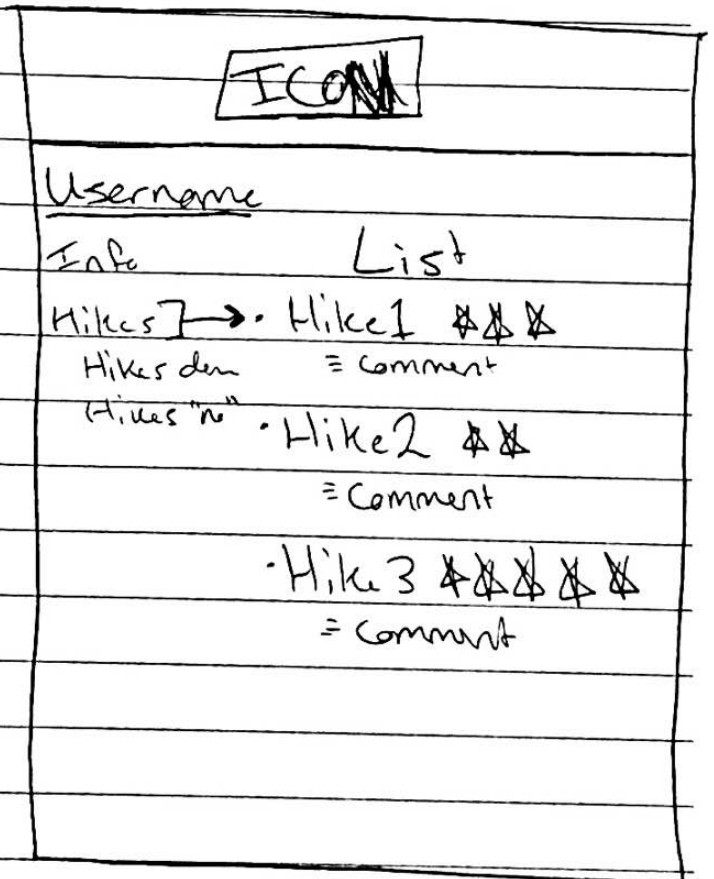 ICON
Username
Info
List
Hikes
Hikes
Hikes "no"
• Hike1 ☆☆☆
= Comment
• Hike2 ☆☆
= Comment
• Hike3 ☆☆☆☆☆
= Comment